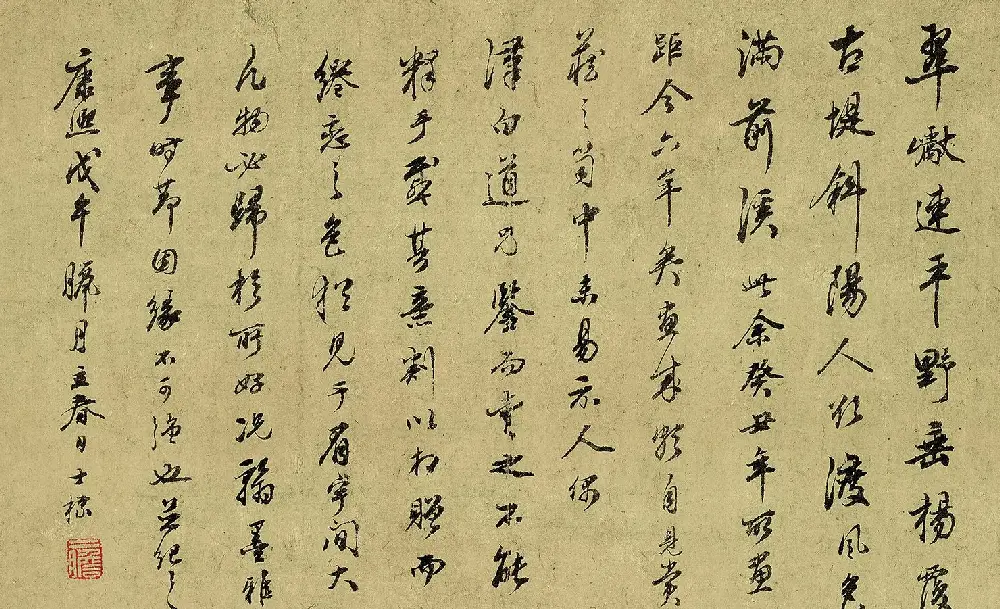 翠巘連平野垂楊覆
古堤斜陽人欲渡風色
滿前溪此余癸丑年所畫
距今六年矣畫成頗自見賞
藏之笥中未易示人偶
漢白道兄鑒而賞之不能
釋手或其意割以相贈而
繾戀之色猶見于眉宇間大
凡物必歸於所好況翰墨雅
事時節因緣不可強也并紀之
康熙戊午臘月立春日士標